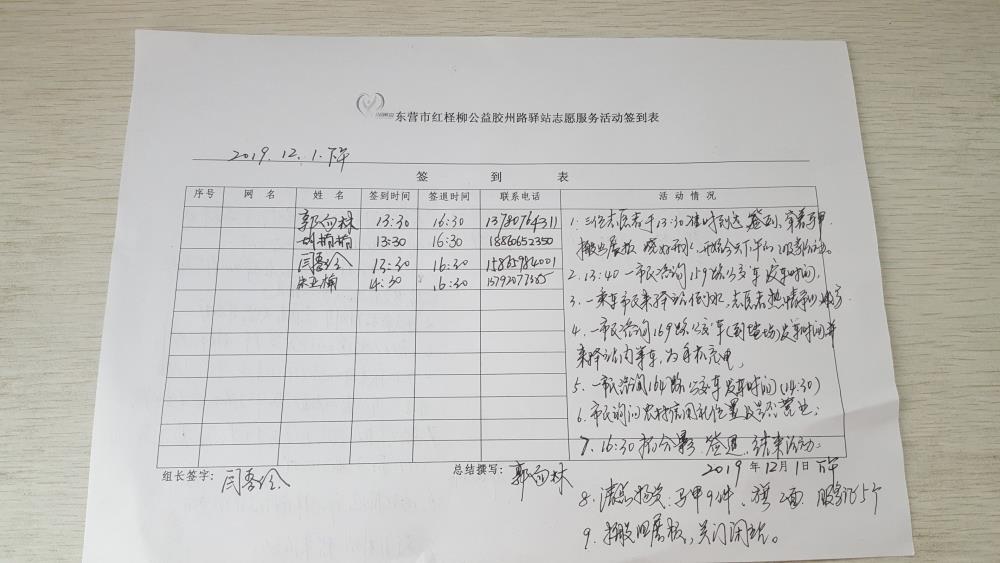 东营市红柽柳公益胶州路驿站志愿服务活动签到表
2019.12.1.下午
签 到 表
序号 网 名 姓 名 签到时间 签退时间 联系电话 活 动 情 况
郭向林 13:30 16:30 13780764311
胡楠楠 13:30 16:30 18860652350
闫 13:30 16:30
朱亚楠 4:30 16:30
1. 三位志愿者于13:30准时到达签到,穿着马甲
搬出展板 烧好开水,开始今天下午的服务活动。
2. 13:40 一市民咨询159路公交车发车时间,
3. 一乘车市民来驿站倒水,志愿者热情
4. 一市民咨询169路公交车(到)发车时间并
来驿站内等车,为手机充电,
5. 一市民咨询164路公交车发车时间(14:30)
6. 市民询问农村信用社位置及是否营业;
7. 16:30 拍合影 签退 结束活动;
组长签字: 闫 总结撰写: 郭向林 2019 年 12 月 1 日 下午
8. 清点物资:马甲9件、旗2面 服务证5个
9. 搬回展板,关门闭站。